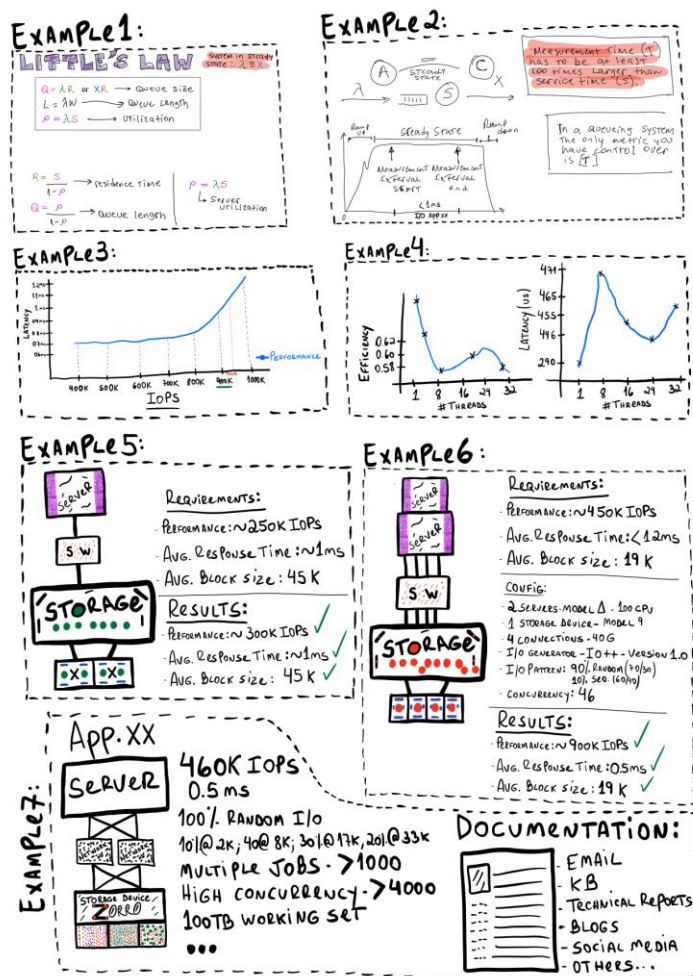 EXAMPLE1:
LITTLE'S LAW
SYSTEM IN STEADY STATE: λ ≡ X
Q=λR or XR → Queue size
L=λW → Queue Length
ρ=λS → Utilization
R = S / 1-ρ → residence time
Q = ρ / 1-ρ → Queue length
ρ = λS
Server utilization
EXAMPLE2:
A
STEADY STATE
C
λ
S
X
Measurement Time (T)
has to be at least
100 times larger than
service time (S).
In a Queueing system
the only metric you
have control over
is [T]
Ramp up
Steady State
Ramp down
Measurement Interval Start
Measurement Interval end
<1ms
I/O App.xx
EXAMPLE3:
LATENCY
12ms
400K 500K 600K 700K 800K 900K 1000K
IOPS
PERFORMANCE
EXAMPLE4
EFFICIENCY
0.62
0.60
0.58
1 8 16 24 32
# THREADS
LATENCY (US)
471
465
455
446
290
1 8 16 24 32
# THREADS
EXAMPLE5:
SERVER
SW
STORAGE
X X
Requirements:
- Performance: ~250K IOPs
- Avg. Response Time: ~1ms
- Avg. Block size: 45K
Results:
- Performance: ~300K IOPs
- Avg. Response Time: ~1ms
- Avg. Block size: 45K
EXAMPLE6:
SERVER
SW
STORAGE
Requirements:
- Performance: ~450K IOPs
- Avg. Response Time: <12ms
- Avg. Block size: 19K
CONFIG:
- 2 SERVERS-MODEL Δ - 100 CPU
- 1 STORAGE DEVICE - MODEL 9
- 4 CONNECTIONS - 40G
- I/O GENERATOR - IO++ - VERSION 1.0
- I/O PATTERN: 90% RANDOM (70/30)
10% SEQ. (60/40)
- CONCURRENCY: 46
Results:
- Performance: ~900K IOPs
- Avg. Response Time: 0.5ms
- Avg. Block size: 19K
EXAMPLE7:
App.XX
SERVER
STORAGE DEVICE
ZORRO
460K IOPS
0.5 ms
100% RANDOM I/O
10%@2K; 40@8K; 30%@17K, 20%@33K
MULTIPLE JOBS - >1000
HIGH CONCURRENCY - >4000
100TB WORKING SET
...
DOCUMENTATION:
- EMAIL
- KB
- TECHNICAL REPORTS
- BLOGS
- SOCIAL MEDIA
- OTHERS...